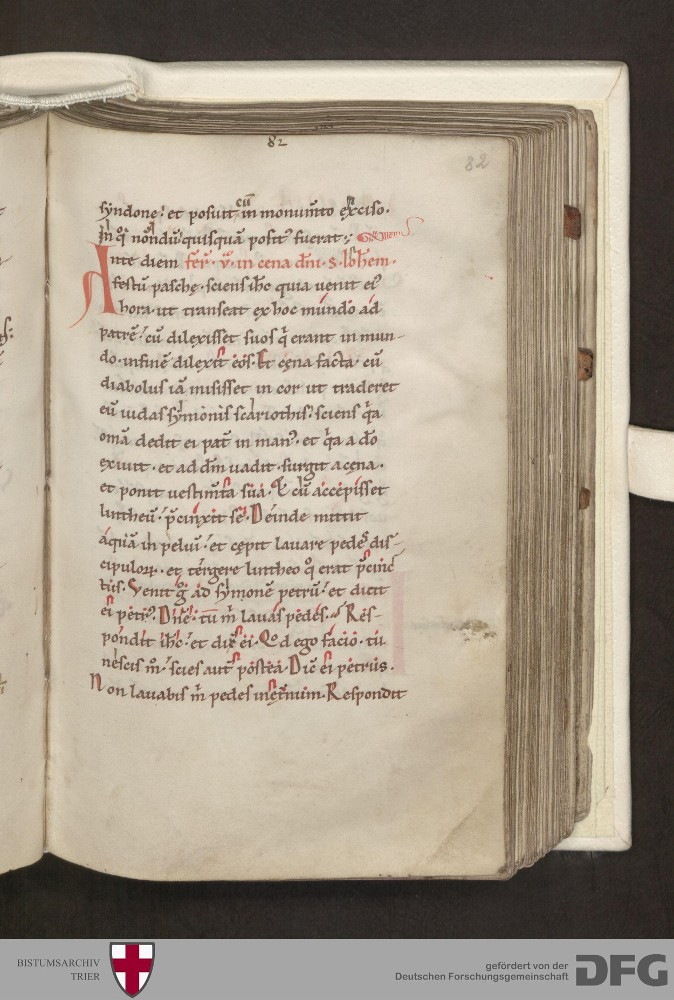 82
82
syndone. et posuit eū in monum̄to exciso.
In q̊ nōdū quisquā posit᷒ fuerat.
Ante diem fer̄. v̄. in cena dn̄i. s. Ioh̄em.
festū pasche. sciens ih̄c quia uenit ei᷒
hora. ut transeat ex hoc mundo ad
patrē. cū dilexisset suos q̄ erant in mun-
do. in finē dilexit eos. Et cena facta. cū
diabolus iā misisset in cor ut traderet
eū iudas symonis scariothis. sciens q̄a
om̄a dedit ei pat̄ in man᷒. et q̄a a dō
exiuit. et ad dm̄ uadit. surgit a cena.
et ponit uestim̄ta sua. Et cū accepisset
lintheū. p̄cinxit se. Deinde mittit
aquā in peluī. et cepit lauare pedes dis-
cipuloꝝ. et tergere lintheo q̊ erat p̄cinc
tus. Venit g̊ ad symonē petrū. et dicit
ei petr᷒. Dn̄e. tu m̄ lauas pedes. Res-
pondit ih̄c. et dix̄ ei. Qd ego facio. tu
nescis m̊. scies aut̄ postea. Dic̄ ei petrus.
Non lauabis m̄ pedes inet̄num. Respondit
BISTUMSARCHIV
TRIER
gefördert von der
Deutschen Forschungsgemeinschaft
DFG